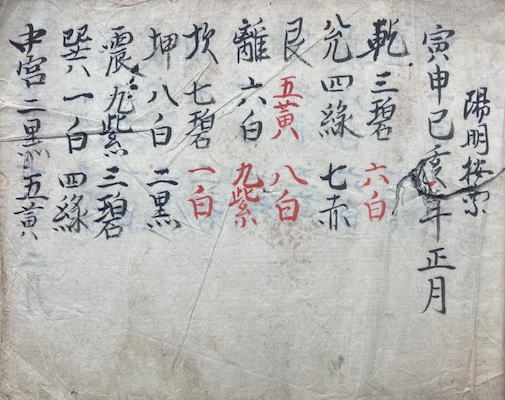 陽明按索
寅申巳亥年正月
乾三碧六白
兌四綠七赤
艮五黃八白
離六白九紫
坎七碧一白
坤八白二黑
震九紫三碧
巽一白四綠
中宮二黑五黃